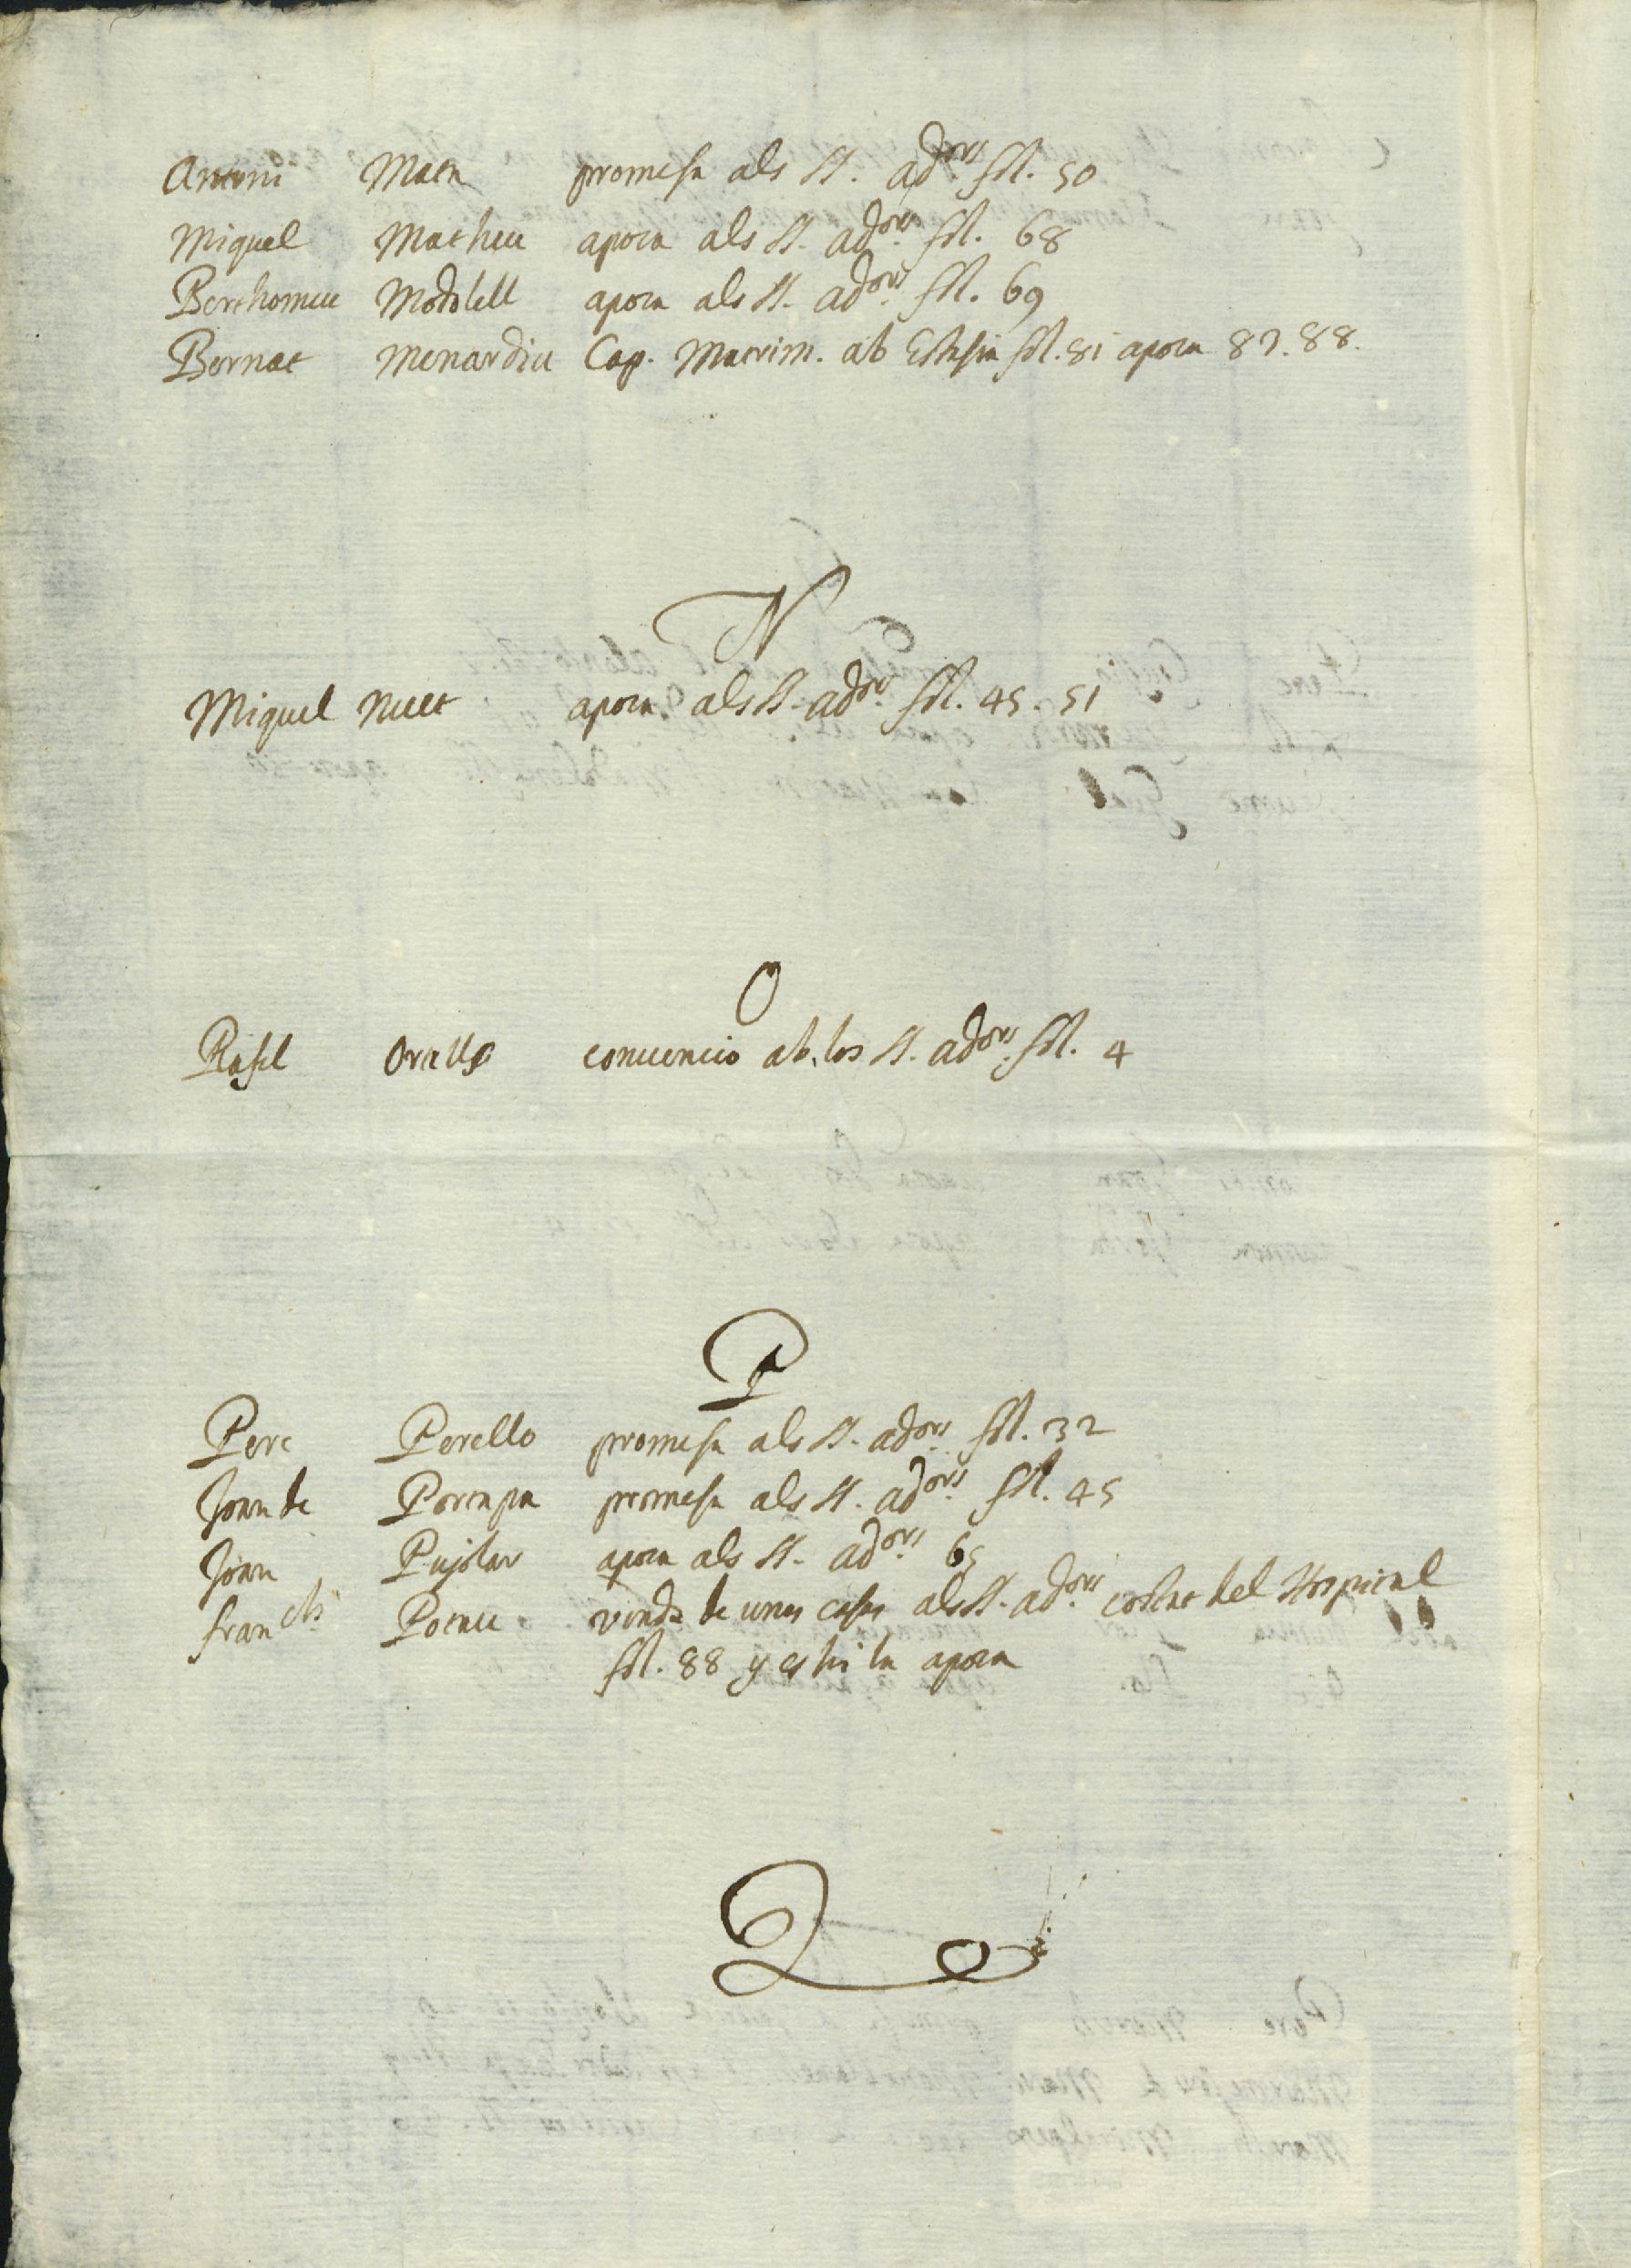 Antoni Mata promesa als SS. ad.ors fol. 50
Miquel Matheu apoca als SS. ad.ors fol. 68
Berthomeu Modolell apoca als SS. ad.ors fol. 69
Bernat Menardiu Cap. Matrim. ab Estasia fol. 81 apoca 87. 88.
N
Miquel Nuet apoca als SS. ad.ors fol. 45. 51
O
Rafel convencio ab los SS. ad.ors fol. 4
P
Pere Perello promesa als SS. ad.ors fol. 32
Joan de promesa als SS. ad.ors fol. 45
Joan Pujolar apoca als SS. ad.ors 65
Fran.ch venda de unes cases als SS. ad.ors costat del Hospital
fol. 88 y es hi la apoca
Q